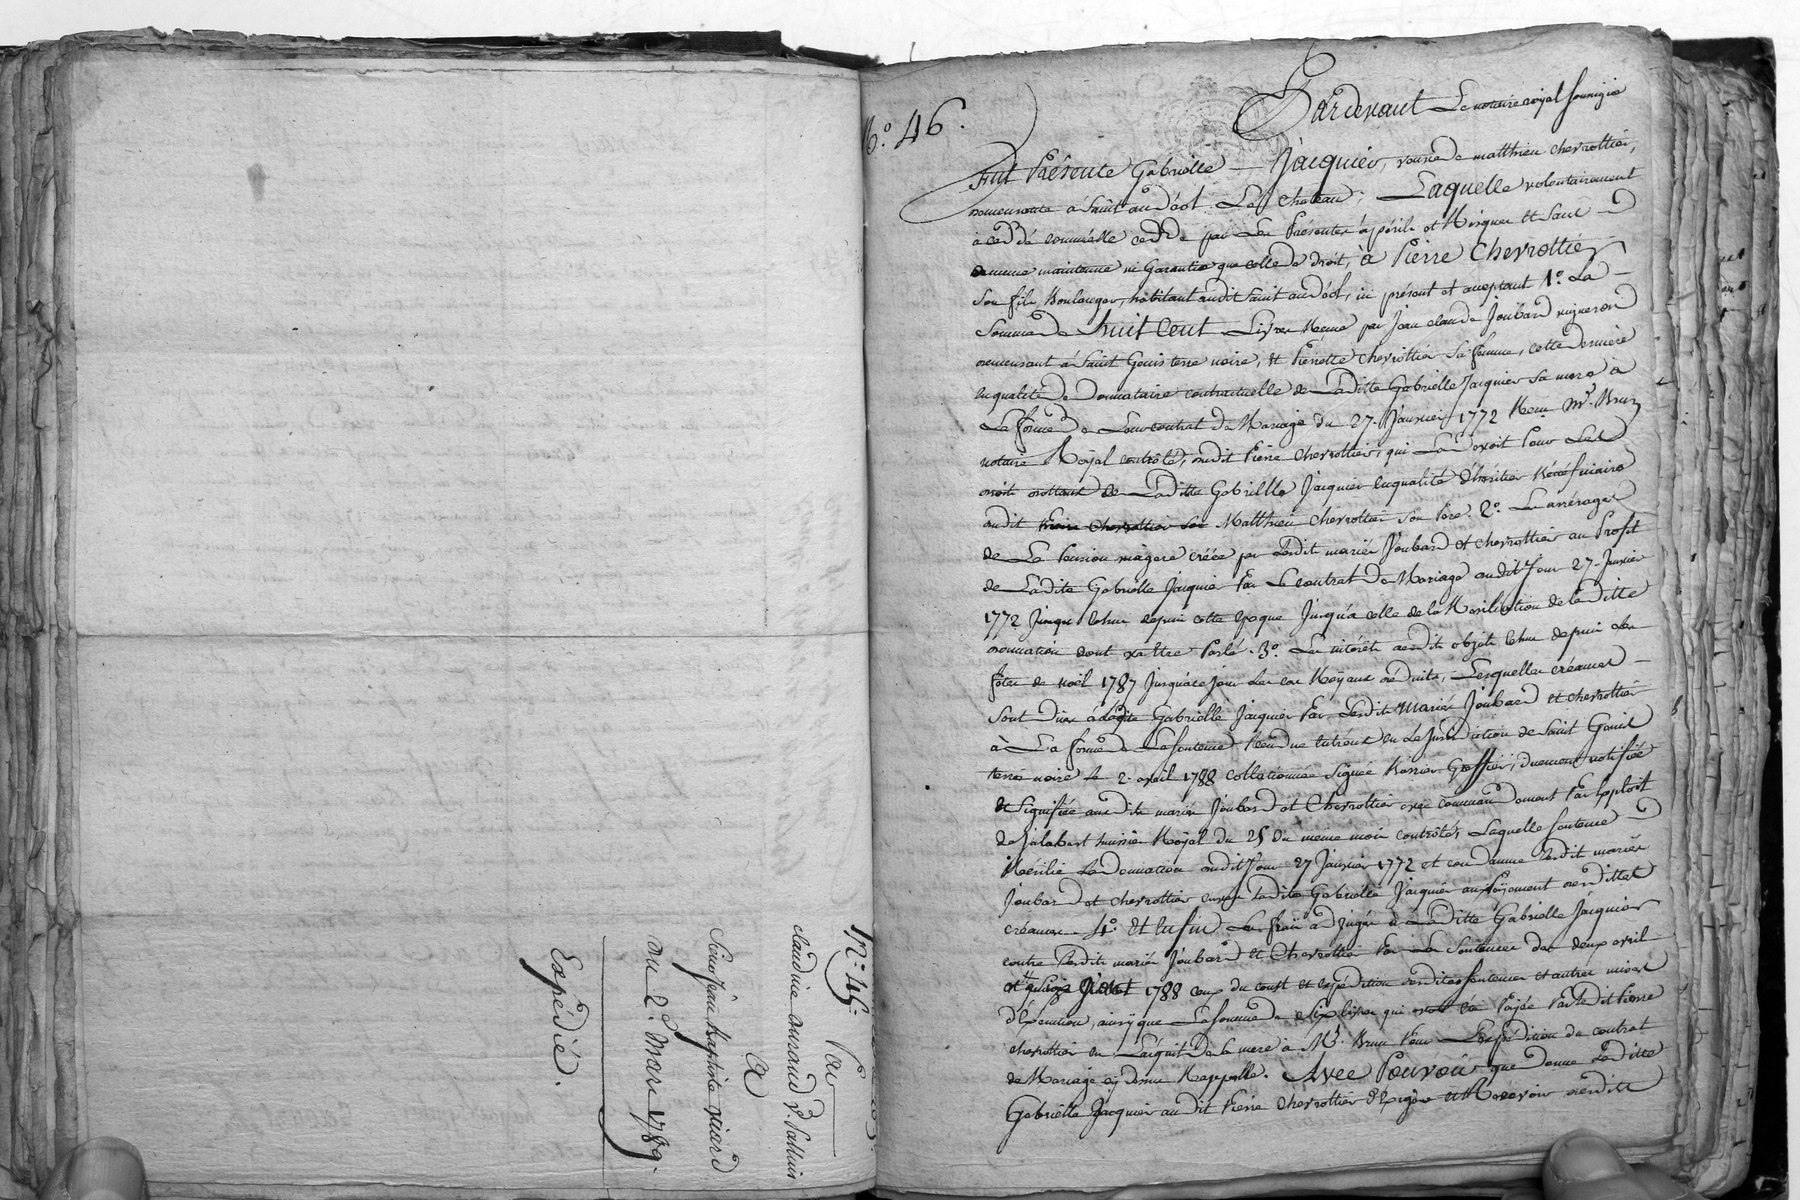 N.° 45
Par
claudine durand v.e
a
Sieur Jean Baptiste viard
du 2. mars 1789.
Expédié.
N.° 46.
Pardevant Le notaire royal soussigné
Fut Présente Gabrielle Jacquier, veuve de matthieu chevrottier,
demeurante à Saint andéol Le château; Laquelle volontairement
a cedé comme elle cede par Les Présentes à péril et Risque et sans
aucune maintenue ni Garantie que celle de droit, à Pierre Chevrottier
Son fils Boulanger, habitant audit Saint andéol, ici présent et acceptant 1.° La
Somme de huit Cent Livres Reçue par Jean claude Joubard vigneron
demeurant à Saint Genis terre noire, et Pierrette chevrottier Sa femme, cette derniere
en qualité de Donnataire contractuelle de Laditte Gabrielle Jacquier Sa mere à
La forme de Leur contrat de Mariage du 27. Janvier 1772 Reçu M.e Brun
notaire Royal controlé, dudit Pierre chevrottier, qui La devoit Pour Les
droits dottaux de Laditte Gabrielle Jacquier en qualité d'héritier Bénéficiaire
dudit Matthieu chevrottier Son Pere. 2.° Les arrérages
de La Pension viagere créée par Lesdits mariés Joubard et chevrottier au Profit
de Ladite Gabrielle Jacquier Par Le contrat de Mariage dudit Jour 27. Janvier
1772 échus depuis cette époque Jusqu'à celle de la Résiliation de laditte
donnation dont va Etre Parlé. 3.° Les intérêts desdits objets échus depuis les
fêtes de noël 1787 Jusqu'à ce jour Les cas Royaux déduits, Lesquelles créances
Sont dues à ladite Gabrielle Jacquier Par Lesdits Mariés Joubard et chevrottier
à La forme de La Sentence Rendue entr'eux en La Jurisdiction de Saint Genis
terre noire le 2. avril 1788 collationnée Signée Greffier, duement notifiée
et Signifiée auxdits mariés Joubard et Chevrottier avec commandement Par Exploit
de Jalabert huissier Royal du 25 du même mois controlé, Laquelle Sentence
Résilie La donnation dudit Jour 27 Janvier 1772 et condamne Lesdits mariés
Joubard et chevrottier envers ladite Gabrielle Jacquier au Payement desdittes
créances. 4.° Et Enfin Les frais adjugés à Laditte Gabrielle Jacquier
contre Lesdits mariés Joubard et Chevrottier Par Les Sentences des deux avril
et 1788 ceux du coust et expédition desdites Sentences et autres mises
d'Exécution, ainsy que La Somme de Six Livres qui a été Payée Par ledit Pierre
chevrottier en L'acquit de la mere à M.e Brun Pour L'Expédition du contrat
de Mariage cy devant Rappellé. Avec Pouvoir que donne Laditte
Gabrielle Jacquier audit Pierre chevrottier d'Exiger et Recevoir